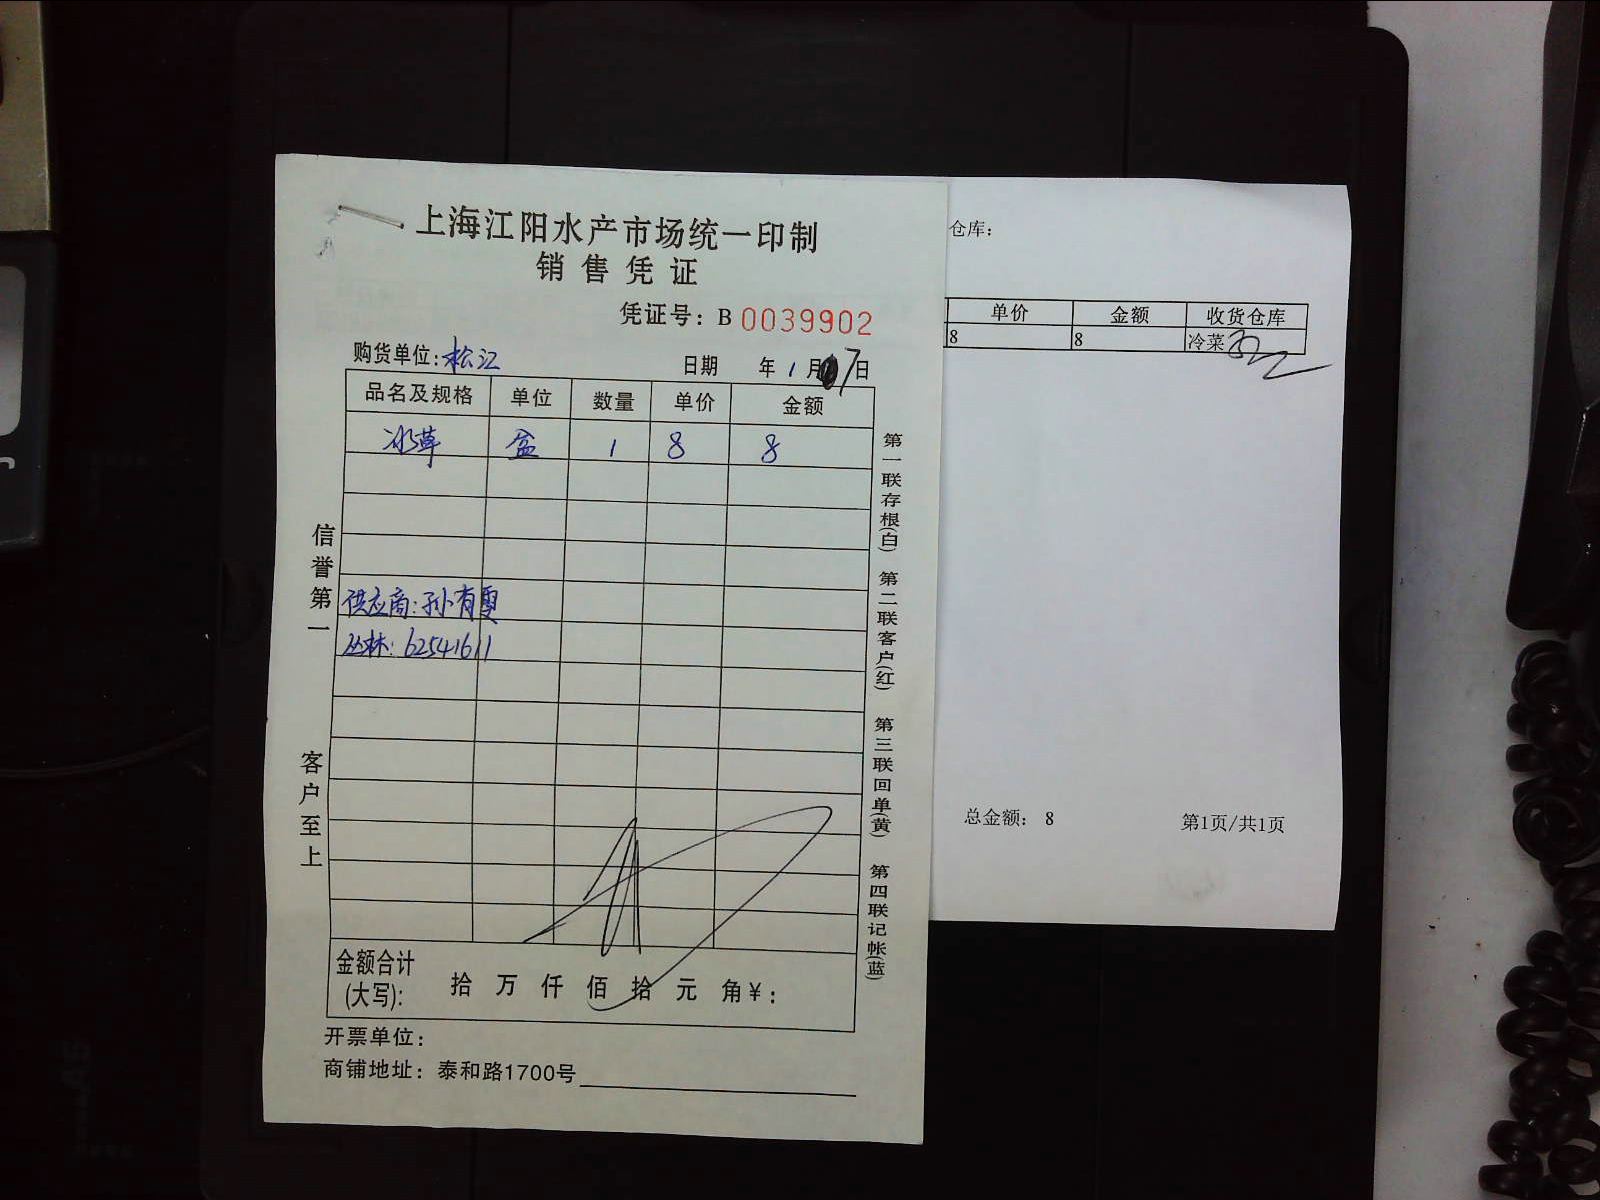 上海江阳水产市场统一印制
销售凭证
凭证号：B 0039902
购货单位：松江 日期 年1月7日
品名及规格 单位 数量 单价 金额
冰草 盒 1 8 8
供应商：孙有雯
丛林：62541611
金额合计
(大写)： 拾 万 仟 佰 拾 元 角￥：
开票单位：
商铺地址：泰和路1700号
信誉第一
客户至上
第一联存根(白) 第二联客户(红) 第三联回单(黄) 第四联记帐(蓝)
仓库：
单价 金额 收货仓库
8 8 冷菜
总金额： 8 第1页/共1页